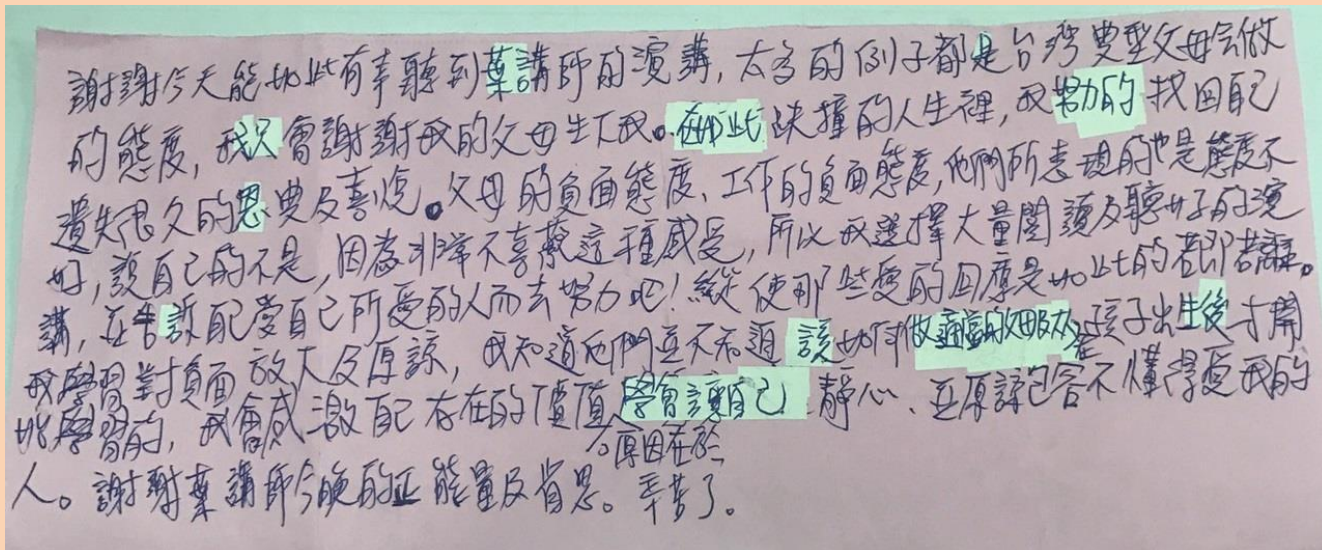 謝謝今天能如此有幸聽到葉講師的演講，太多的例子都是台灣典型父母会做
的態度，我只會謝謝我的父母生下我。在如此跌撞的人生裡，我努力的找回自己
遺失很久的恩典及喜悅。父母的負面態度、工作的負面態度，他們所表現的也是態度不
好，說自己的不是，因為非常不喜歡這種感受，所以我選擇大量閱讀及聽好的演
講，在告訴自己愛自己所愛的人而去努力吧！縱使那些愛的回應是如此的若即若離。
我學習對負面放大及原諒，我知道他們並不知道該如何做適當的父母及在孩子出生後才開
始學習的，我會感激自己存在的價值，學會讓自己靜心、並原諒包容不懂得愛我的
。原因在於
人。謝謝葉講師今晚的正能量及省思。辛苦了。